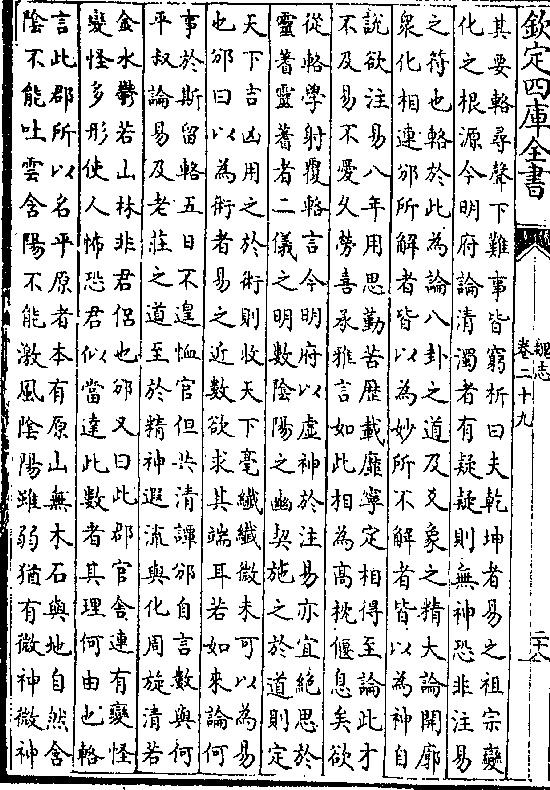 欽定四庫全書
魏志
卷二十九
其要輅尋聲下難事皆窮析曰夫乾坤者易之祖宗變
化之根源今明府論清濁者有疑疑則無神恐非注易
之符也輅於此為論八卦之道及爻象之精大論開廓
衆化相連邠所解者皆以為妙所不解者皆以為神自
說欲注易八年用思勤苦歷載靡寧定相得至論此才
不及易不愛久勞喜承雅言如此相為高枕偃息矣欲
從輅學射覆輅言今明府以虛神於注易亦宜絕思於
靈蓍靈蓍者二儀之明數陰陽之幽契施之於道則定
天下吉凶用之於術則收天下毫纖纖微未可以為易
也邠曰以為術者易之近數欲求其端耳若如來論何
事於斯留輅五日不遑恤官但共清譚邠自言數與何
平叔論易及老莊之道至於精神遐流與化周旋清若
金水鬱若山林非君侣也邠又曰此郡官舍連有變怪
變怪多形使人怖恐君似當達此數者其理何由也輅
言此郡所以名平原者本有原山無木石與地自然含
陰不能吐雲含陽不能激風陰陽雖弱猶有微神微神